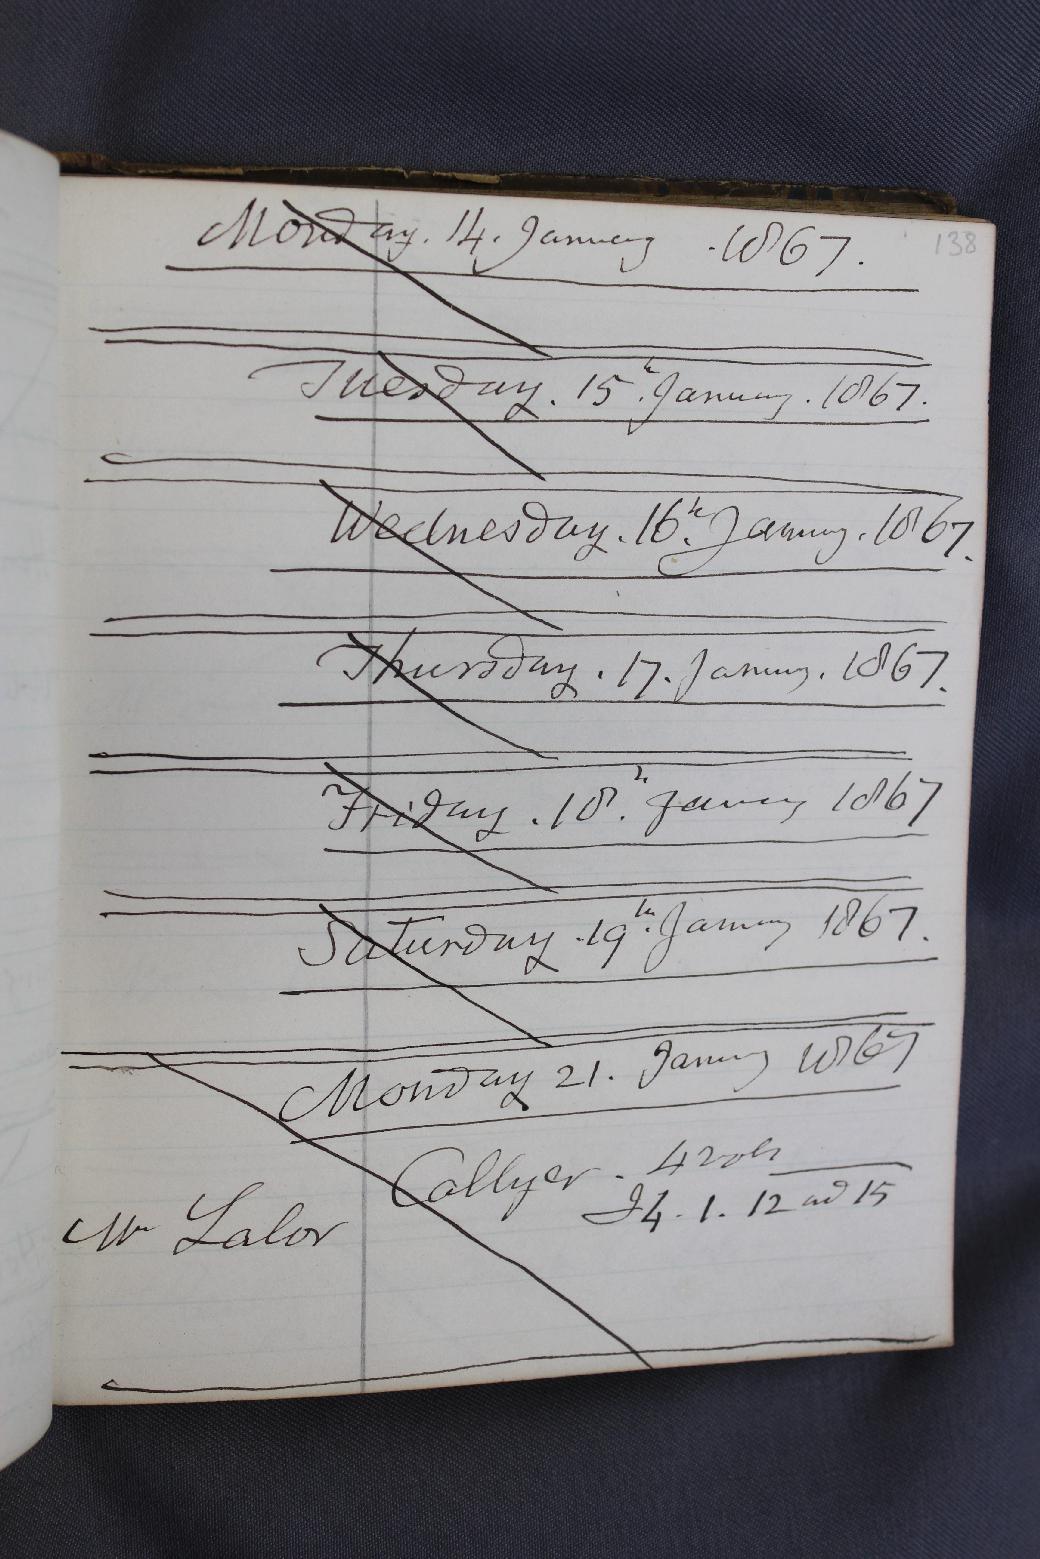 138
Monday. 14. January . 1867.
Tuesday. 15th. January. 1867.
Wednesday. 16th. January. 1867.
Thursday. 17. January. 1867.
Friday. 18th. January 1867
Saturday. 19th. January 1867.
Monday 21. January 1867
Collyer. 4 vols
I4. 1. 12 ad 15
Mr Lalor